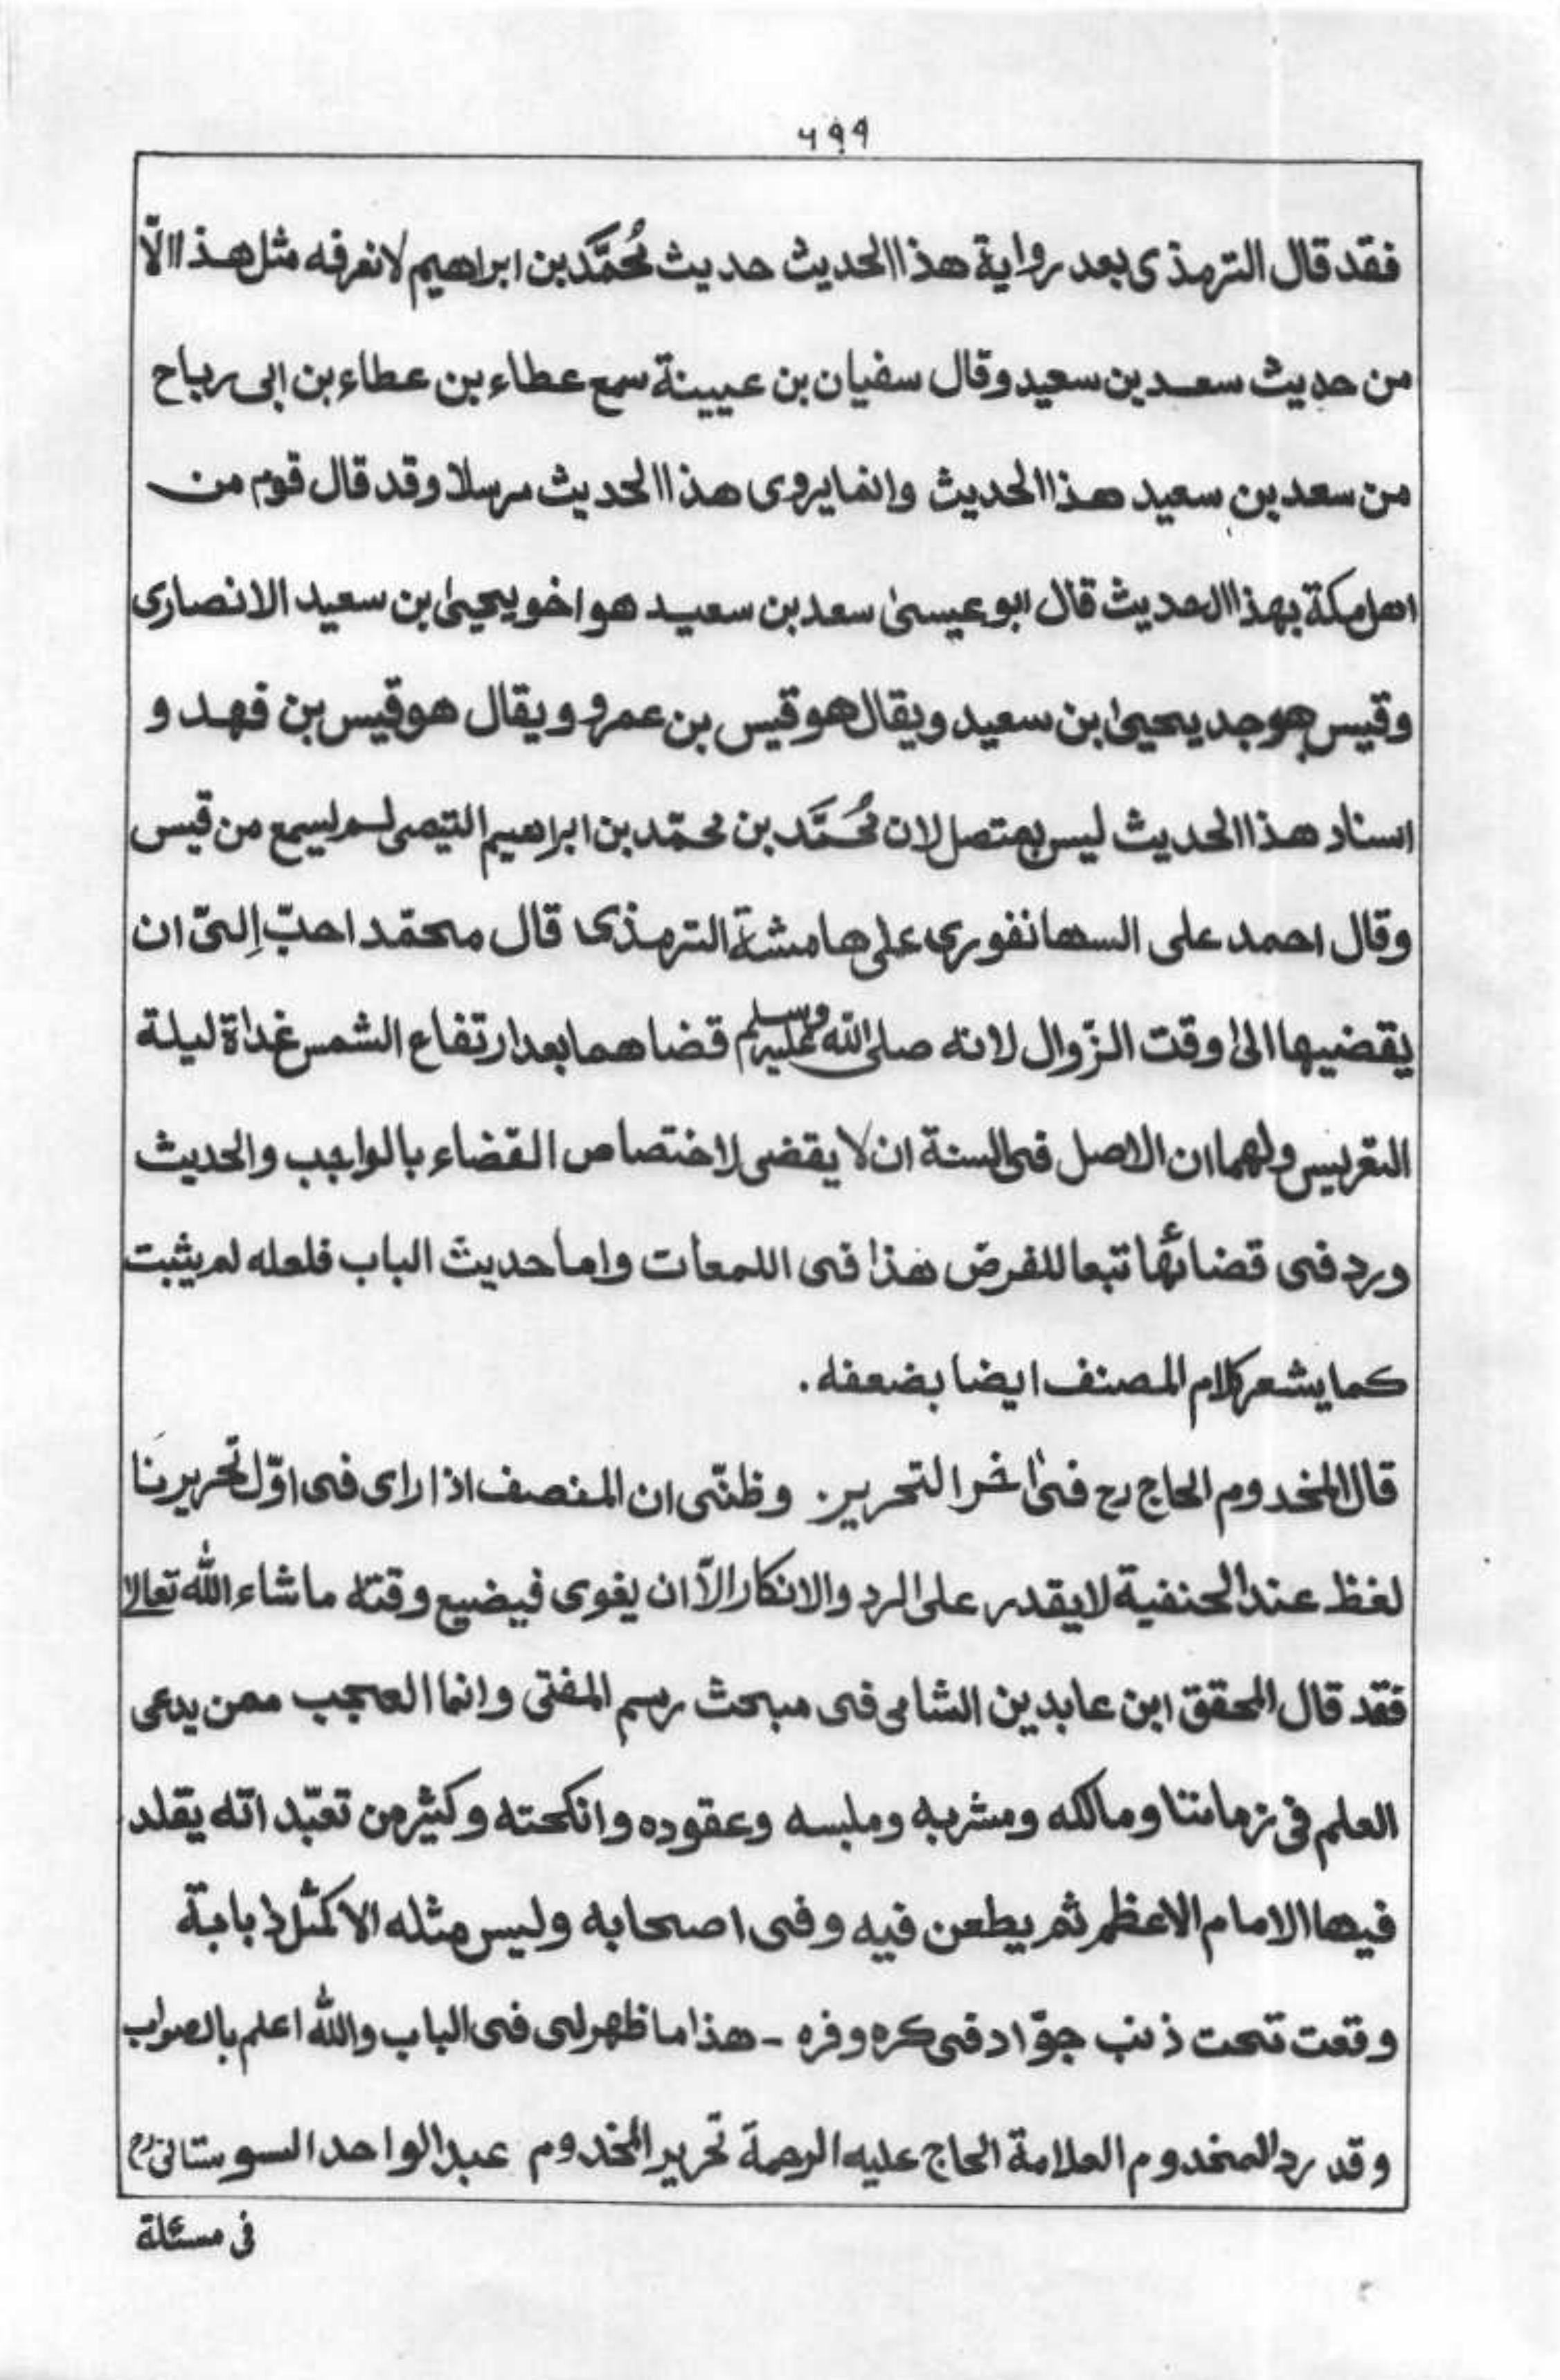 ٦٩٩
فقد قال الترمذى بعد رواية هذا الحديث حديث مُحمَّد بن ابراهيم لا نعرفه مثل هذا الّا
من حديث سعد بن سعيد وقال سفيان بن عيينة سمع عطاء بن عطاء بن ابى رباح
من سعد بن سعيد هذا الحديث وانما يروى هذا الحديث مرسلا وقد قال قوم من
اهل مكة بهذا الحديث قال ابو عيسىٰ سعد بن سعيد هو اخو يحيىٰ بن سعيد الانصارى
وقيس هو جد يحيىٰ بن سعيد ويقال هو قيس بن عمرو ويقال هو قيس بن فهد و
اسناد هذا الحديث ليس بمتصل لان مُحَمَّد بن محمّد بن ابراهيم التيمى لم يسمع من قيس
وقال احمد على السهانفورى على هامشة الترمذى قال محمّد احبّ اِلىّ ان
يقضيها الىٰ وقت الزّوال لانه صلى الله عليه وسلم قضاهما بعد ارتفاع الشمس غداة ليلة
التعريس ولهما ان الاصل فى السنة ان لا يقضى لاختصاص القضاء بالواجب والحديث
ورد فى قضائها تبعا للفرض هذا فى اللمعات واما حديث الباب فلعله لم يثبت
كما يشعر كلام المصنف ايضا بضعفه.
قال المخدوم الحاج رح فىٰ اخر التحرير. وظنّى ان المنصف اذا راى فى اوّل تحريرنَا
لفظ عند الحنفية لا يقدر على الرد والانكار الاّ ان يغوى فيضيع وقته ما شاء الله تعالىٰ
فقد قال المحقق ابن عابدين الشامى فى مبحث رسم المفتى وانما العجب ممن يدعى
العلم فى زماننا ومالكه ومشربه وملبسه وعقوده وانكحته وكثير من تعبّد انّه يقلد
فيها الامام الاعظم ثم يطعن فيه وفى اصحابه وليس مثله الا كمثل ذبابة
وقعت تحت ذنب جوّاد فى كره وفره - هذا ما ظهر لى فى الباب والله اعلم بالصواب
وقد رد المخدوم العلامة الحاج عليه الرحمة تحرير المخدوم عبد الواحد السوستانى رح
فى مسئلة